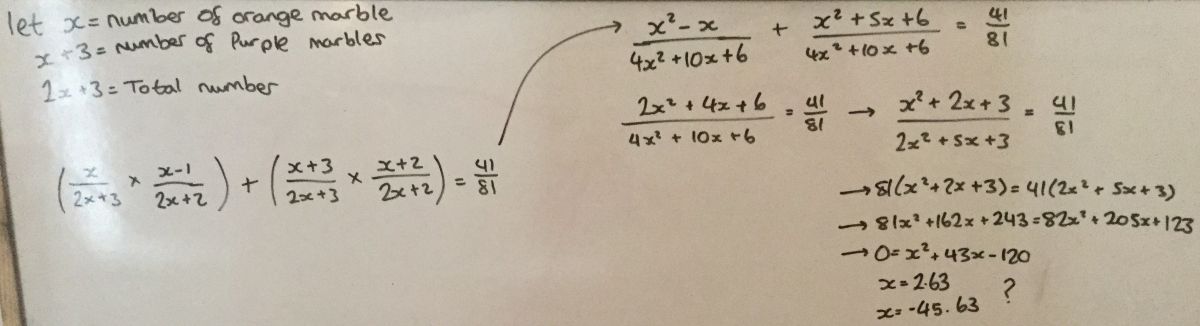 let x = number of orange marble
x + 3 = number of Purple marbles
2x + 3 = Total number
(x/2x+3 × x-1/2x+2) + (x+3/2x+3 × x+2/2x+2) = 41/81
x² - x/4x² + 10x + 6 + x² + 5x + 6/4x² + 10x + 6 = 41/81
2x² + 4x + 6/4x² + 10x + 6 = 41/81 → x² + 2x + 3/2x² + 5x + 3 = 41/81
→ 81(x² + 2x + 3) = 41(2x² + 5x + 3)
→ 81x² + 162x + 243 = 82x² + 205x + 123
→ 0 = x² + 43x - 120
x = 2.63
x = -45.63 ?